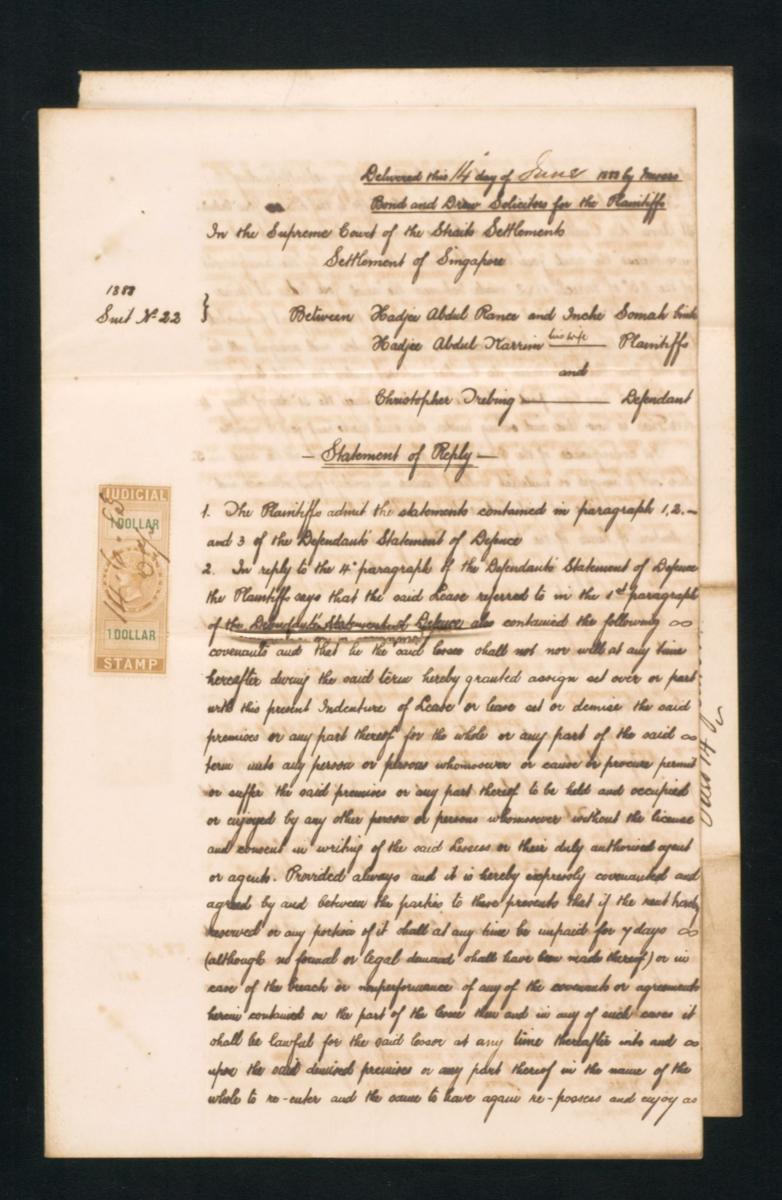 Delivered this 14 day of June 1883 by Messrs
Bond and Drew Solicitors for the Plaintiffs
In the Supreme Court of the Straits Settlements
Settlement of Singapore
1883
Suit No 22 } Between Hadjee Abdul Rance and Inche Somah
Hadjee Abdul Karrim his wife Plaintiffs
and
Christopher Trebing Defendant
- Statement of Reply -
JUDICIAL
1 DOLLAR
1 DOLLAR
STAMP
1. The Plaintiffs admit the statements contained in paragraph 1, 2. -
and 3 of the Defendants Statement of Defence
2. In reply to the 4th paragraph of the Defendants Statement of Defence
the Plaintiffs says that the said Lease referred to in the 1st paragraph
of the Statement of Defence also contained the following
covenants and that he the said lessee shall not nor will at any time
hereafter during the said term hereby granted assign set over or part
with this present Indenture of Lease or lease set or demise the said
premises or any part thereof for the whole or any part of the said
term unto any person or persons whomsoever or cause or procure permit
or suffer the said premises or any part thereof to be held and occupied
or enjoyed by any other person or persons whomsoever without the license
and consent in writing of the said Lessors or their duly authorised agent
or agents. Provided always and it is hereby expressly covenanted and
agreed by and between the parties to these presents that if the rent hereby
reserved or any portion of it shall at any time be unpaid for 7 days
(although no formal or legal demand shall have been made thereof) or in
case of the breach or nonperformance of any of the covenants or agreements
herein contained on the part of the lessee then and in any of such cases it
shall be lawful for the said lessor at any time thereafter into and
upon the said demised premises or any part thereof in the name of the
whole to re-enter and the same to have again re-possess and enjoy as